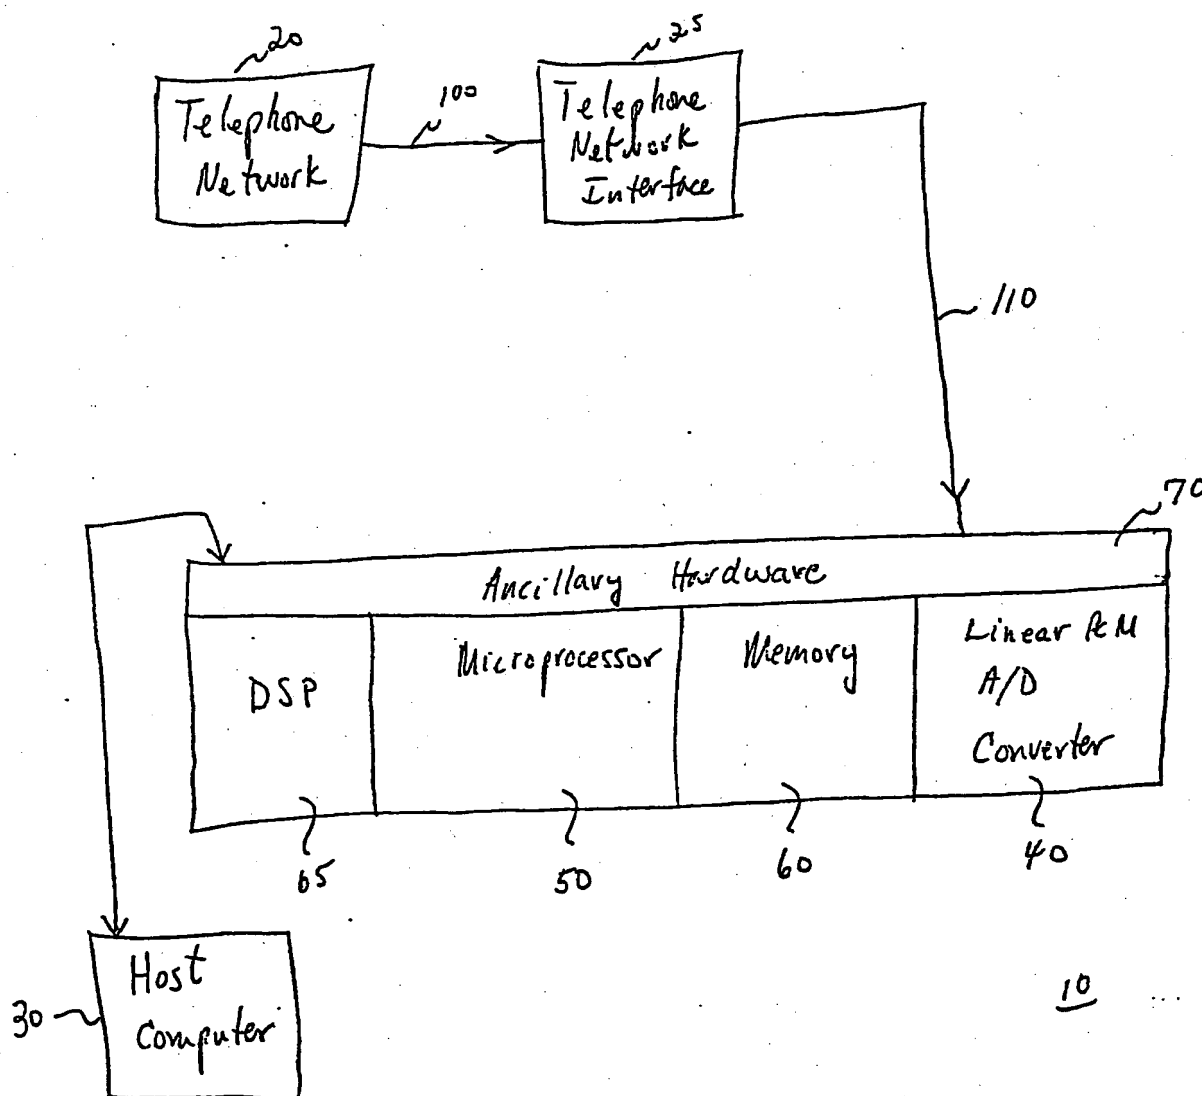 20
25
Telephone
Network
100
Telephone
Network
Interface
110
70
Ancillary Hardware
DSP
Microprocessor
Memory
Linear PCM
A/D
Converter
65
50
60
40
Host
Computer
30
10